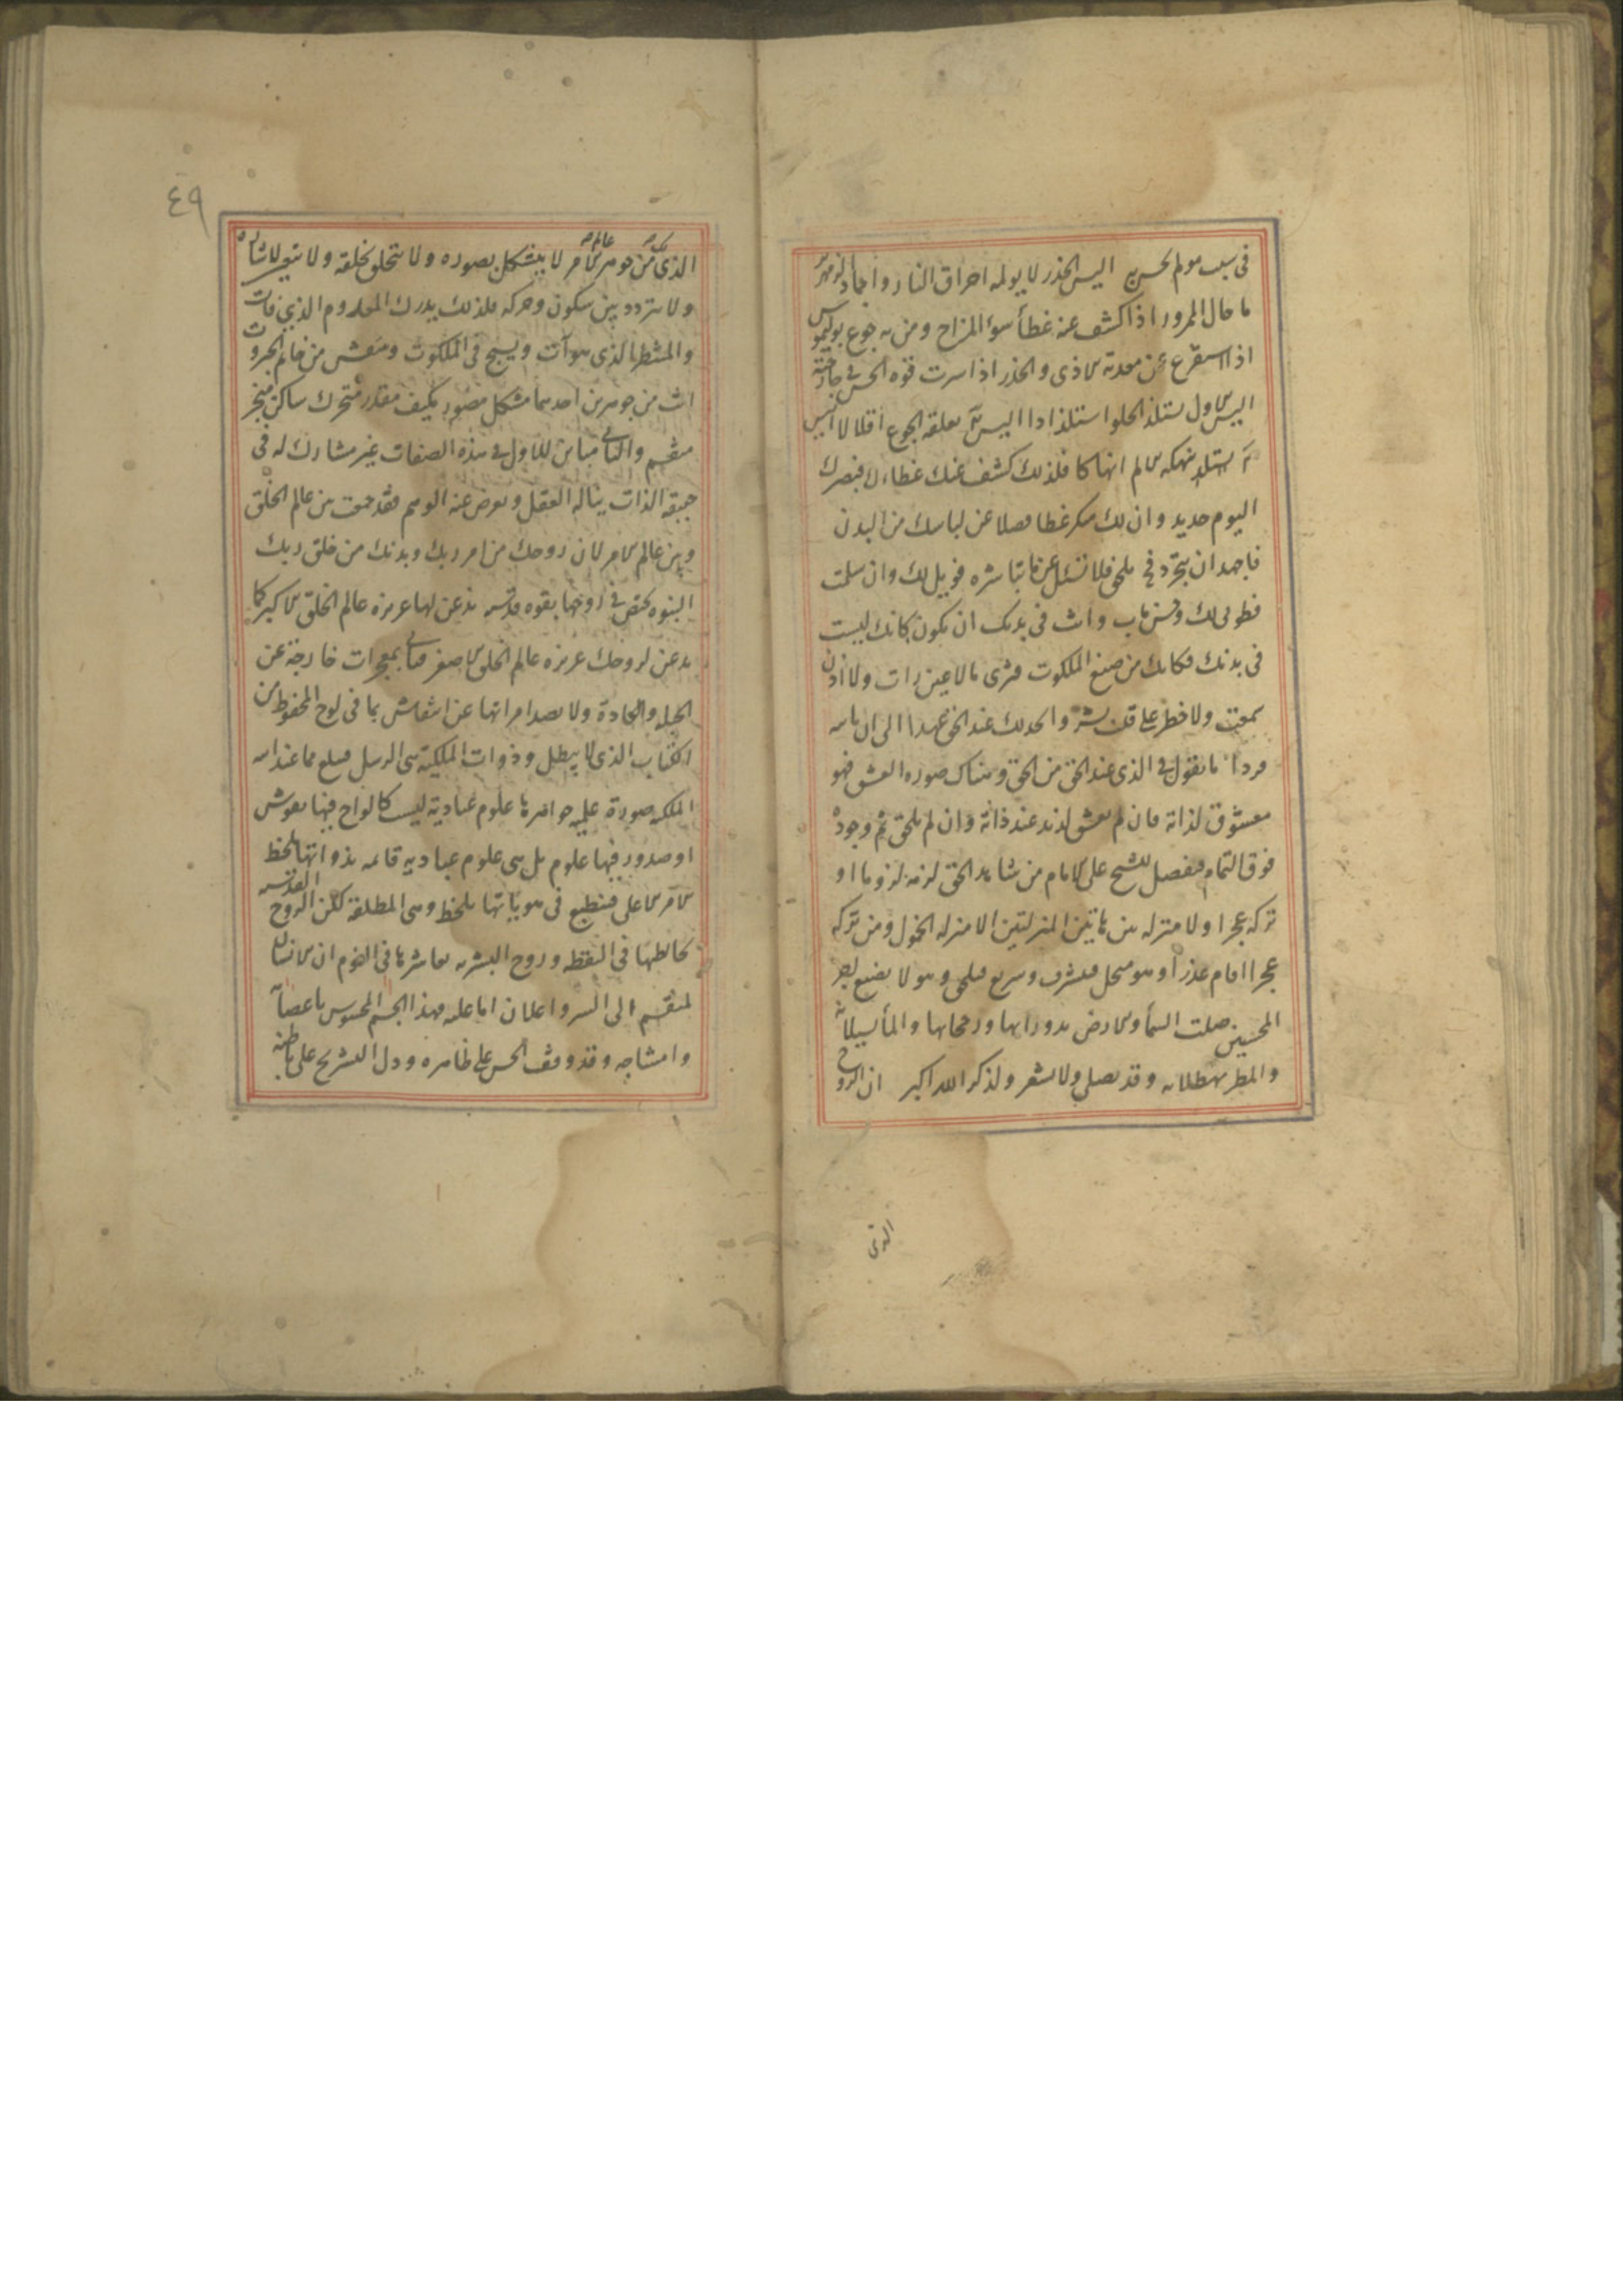 في سبب مولم لحس به اليس الخدر لا يولمه احراق النار واجماد الزمهرير
ما حال الممرور اذا كشف عنه غطأ سوء المزاج ومن به جوع بوليموس
اذا استفرغ عن معدته الاذى والخدر اذا سرت قوه الحس في جارحته
اليس الاول يستلذ الحلو استلذاذا اليس آ يقلقه الجوع اقلالا اليس
آ يستلذ ينهكه الالم انهاكا فلذلك كشف عنك غطاءك فبصرك
اليوم حديد وان لك منك غطا فضلا عن لباسك من البدن
فاجهد ان تتجرد فح تلحق فلا تسئل عن ما تباشره فويل لك وان سلمت
فطوبى لك وحسن ماب وانت في بدنك ان تكون كانك ليست
في بدنك فكانك من صقع الملكوت فترى ما لا عين رات ولا اذن
سمعت ولا خطر على قلب بشر واتحد لك عند الحق عهدا الى ان ياتيه
فردا ما تقول في الذي عند الحق من الحق وهناك صوره العشق فهو
معشوق لذاته فان لم يعشق لذيذ عند ذاته وان لم يلحق تم وجوده
فوق التمام ففضل للشح على الامام من شاهد الحق لزمه لزوما او
تركه عجزا ولا منزله بين هاتين المنزلتين الا منزله الخمول ومن تركه
عجزا اقام عذرا وهو متجل فيشرف وسريع فيلحق وهو لا يضيع اجر
المحسنين صلت السمأ والارض بدورانها ورجحانها والمأ بسيلانه
والمطر بهطلانه وقد يصلي ولا يشعر ولذكر الله اكبر ان الروح
الذى
٤٩
الذى لك من جوهر عالم الامر لا يتشكل بصوره ولا يتخلق بخلقه ولا يتعين لاشاره
ولا يتردد بين سكون وحركه فلذلك يدرك المعدوم الذي فات
والمنتظر الذى هو آت ويسبح في الملكوت وينتقش من خاتم الجبروت
انت من جوهرين احدهما مشكل مصور مكيف مقدر متحرك ساكن متحيز
منقسم والثاني مباين للاول في هذه الصفات غير مشارك له في
حقيقة الذات يناله العقل ويعرض عنه الوهم فقد جمعت من عالم الخلق
وبين عالم الامر لان روحك من امر ربك وبدنك من خلق ربك
النبوه تختص في روحها بقوه قدسيه تذعن لها غريزه عالم الخلق الاكبر كما
يذعن لروحك غريزه عالم الخلق الاصغر فتاتي بمعجزات خارجة عن
الجبله والعادة ولا يصدا مراتها عن انتقاش بما في لوح المحفوظ من
الكتاب الذى لا يبطل وذوات الملكية هي الرسل فيبلغ مما عند الله
الملكيه صورة علميه جواهرها علوم ابداعية ليست كالواح فيها نقوش
او صدور فيها علوم بل هي علوم ابداعيه قائمه بذواتها تلحظ
الامر الاعلى فينطبع في هوياتها ما تلحظ وهي المطلقة لكن الروح القدسيه
تخالطها في اليقظه وروح البشريه تعاشرها في النوم ان الانسان
لمنقسم الى السر واعلان اما علنه فهذا الجسم المحسوس باعضائه
وامشاجه وقد وقف الحس على ظاهره ودل التشريح على باطنه